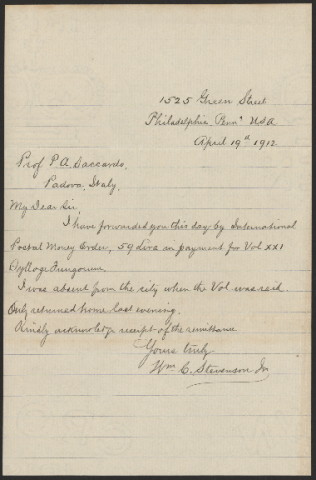 1525 Green Street
Philadelphia, Penna USA
April 19th 1912.
Prof P. A. Saccardo,
Padova, Italy.
My Dear Sir,
I have forwarded you this day by International
Postal Money Order, 59 Lira in payment for Vol XXI
Sylloge Fungorum.
I was absent from the city when the Vol was recd
Only returned home last evening.
Kindly acknowledge receipt of the remittance
Yours truly
Wm C. Stevenson Jr